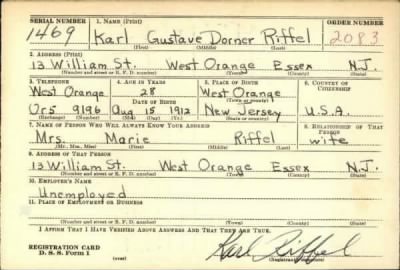 SERIAL NUMBER 1. NAME (Print) ORDER NUMBER
1469 Karl Gustave Dorner Riffel 2083
(First) (Middle) (Last)
2. ADDRESS (Print)
13 William St. West Orange Essex N.J.
(Number and street or R. F. D. number) (Town) (County) (State)
3. TELEPHONE 4. AGE IN YEARS 5. PLACE OF BIRTH 6. COUNTRY OF CITIZENSHIP
West Orange 28 West Orange
DATE OF BIRTH (Town or county)
Or5 9196 Aug 15 1912 New Jersey U.S.A.
(Exchange) (Number) (Mo.) (Day) (Yr.) (State or country)
7. NAME OF PERSON WHO WILL ALWAYS KNOW YOUR ADDRESS 8. RELATIONSHIP OF THAT PERSON
Mrs. Marie Riffel wife
(Mr., Mrs., Miss) (First) (Middle) (Last)
9. ADDRESS OF THAT PERSON
13 William St. West Orange Essex N.J.
(Number and street or R. F. D. number) (Town) (County) (State)
10. EMPLOYER'S NAME
Unemployed
11. PLACE OF EMPLOYMENT OR BUSINESS
(Number and street or R. F. D. number) (Town) (County) (State)
I AFFIRM THAT I HAVE VERIFIED ABOVE ANSWERS AND THAT THEY ARE TRUE.
REGISTRATION CARD
D. S. S. Form 1 Karl Riffel
(over) (Registrant's signature)